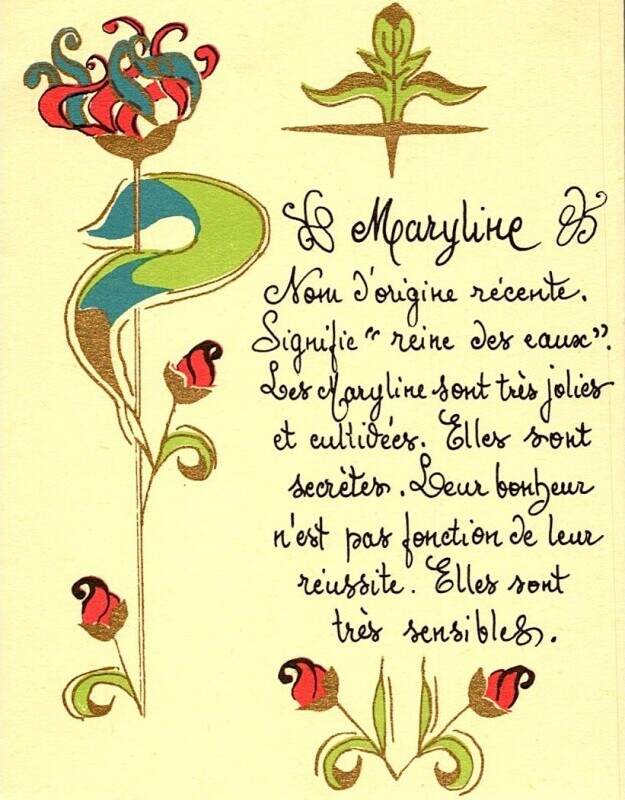 Maryline
Nom d'origine récente.
Signifie " reine des eaux".
Les Maryline sont très jolies
et cultivées. Elles sont
secrètes. Leur bonheur
n'est pas fonction de leur
réussite. Elles sont
très sensibles.